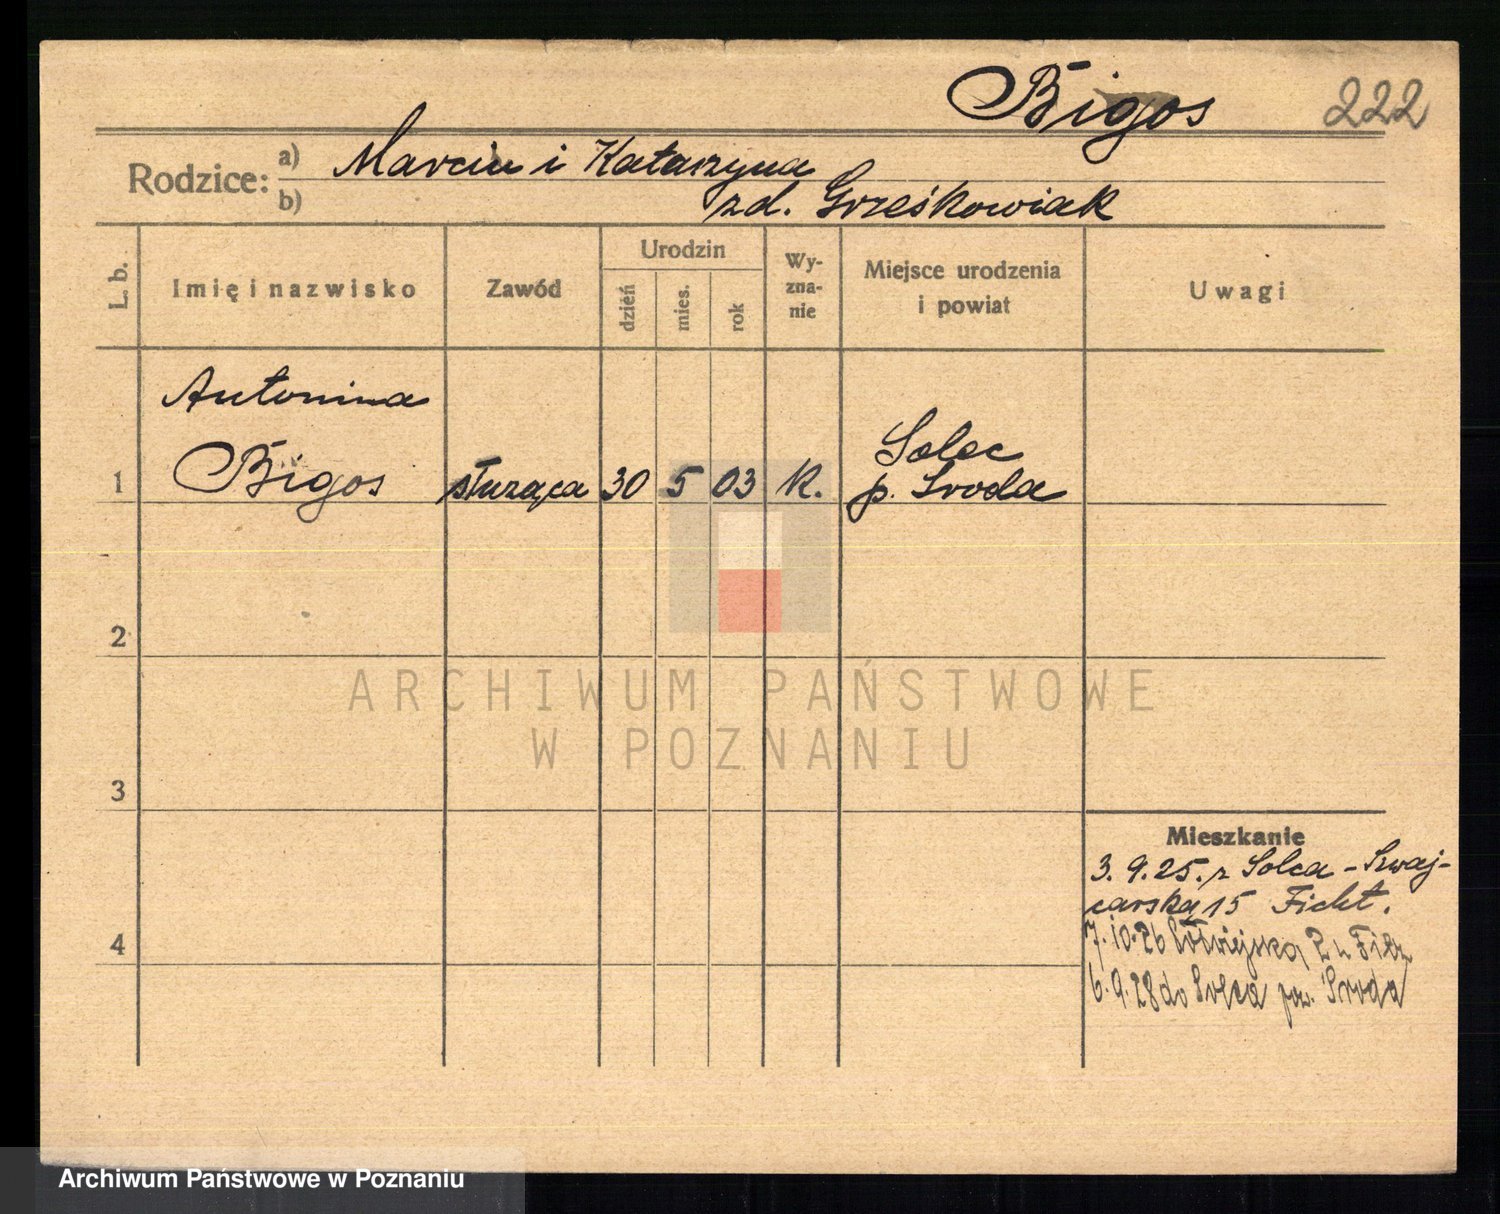 Bigos 222
Rodzice: a) Marcin i Katarzyna
b) zd. Grześkowiak
L. b.
Imię i nazwisko
Zawód
Urodzin
dzień
mies.
rok
Wy-
zna-
nie
Miejsce urodzenia
i powiat
Uwagi
Antonina
1 Bigos służąca 30 5 03 k. Solec
p. Środa
2
ARCHIWUM PAŃSTWOWE
W POZNANIU
3
Mieszkanie
3.9.25. z Solca - Szwaj-
carska 15 Ficht.
4
7.10.26 Półwiejska
6.9.28 do Solca pow. Środa
Archiwum Państwowe w Poznaniu